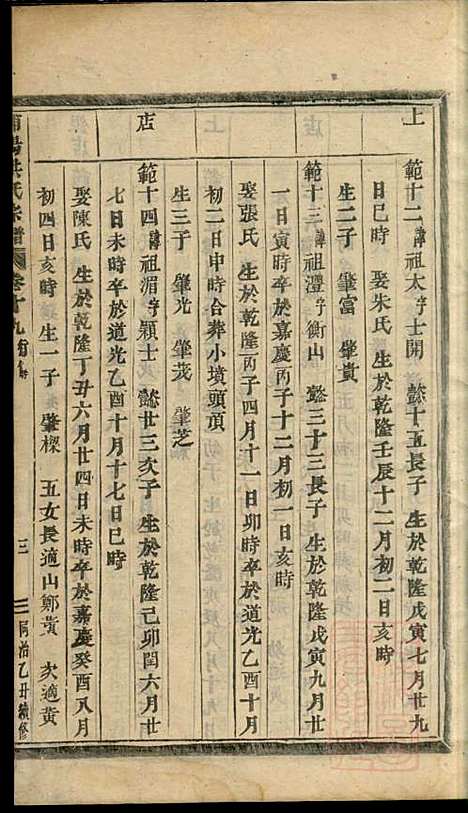 上店
範十二諱祖太字士開 懿十五長子 生於乾隆戊寅七月廿九
日巳時 娶朱氏 生於乾隆壬辰十二月初二日亥時
生二子 肇富 肇貴
範十三諱祖澧字衡山 懿三十三長子 生於乾隆戊寅九月廿
一日寅時卒於嘉慶丙子十二月初一日亥時
娶張氏 生於乾隆丙子四月十一日卯時卒於道光乙酉十月
初二日申時合葬小墳頭頂
生三子 肇光 肇茂 肇芝
範十四諱祖湄字穎士 懿廿三次子 生於乾隆己卯閏六月廿
七日未時卒於道光乙酉十月十七日巳時
娶陳氏 生於乾隆丁丑六月廿四日未時卒於嘉慶癸酉八月
初四日亥時 生一子 肇樑 五女長適山鄭黃 次適黃
洪氏宗譜 卷十九 三 同治乙丑續修